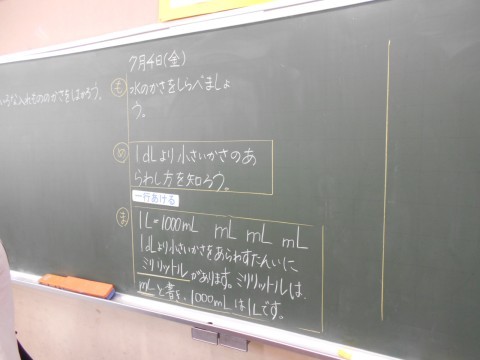 7月4日(金)
も 水のかさをしらべましょ
う。
め 1dLより小さいかさのあ
らわし方を知ろう。
一行あける
ま 1L=1000mL mL mL mL
1dLより小さいかさをあらわすたんいに
ミリリットルがあります。ミリリットルは、
mLと書き、1000mLは1Lです。
入れもののかさをはかろう。